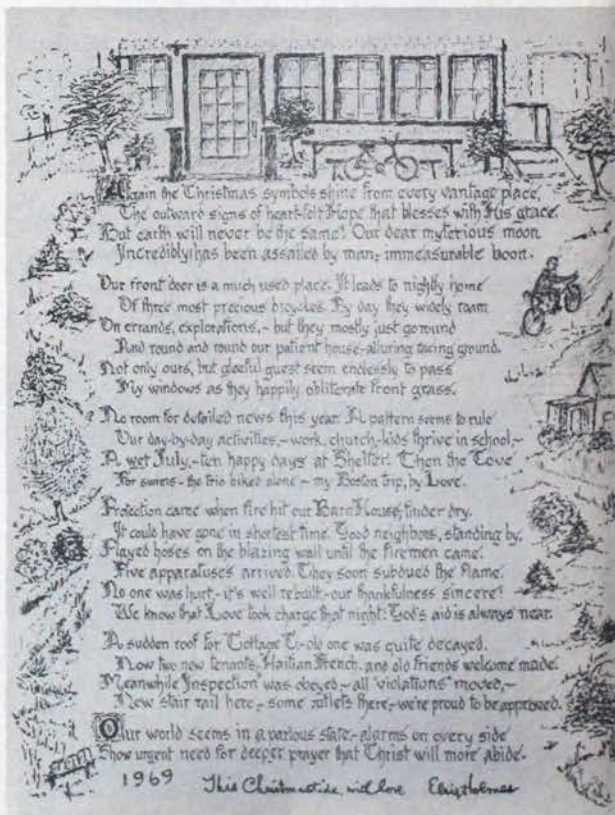 Again the Christmas symbols shine from every vantage place,
The outward signs of heart-felt Hope that blesses with His grace.
But earth will never be the same! Our dear mysterious moon
Incredibly! has been assailed by man; immeasurable boon.
Our front door is a much used place. It leads to nightly home
Of three most precious bicycles. By day they widely roam
On errands, explorations,- but they mostly just go round
And round and round our patient house-alluring racing ground.
Not only ours, but gleeful guest seem endlessly to pass
My windows as they happily obliterate front grass.
No room for detailed news this year. A pattern seems to rule
Our day-by-day activities,-work, church,-kids thrive in school,-
A wet July,-ten happy days at Shelter! Then the Cove
For swims-the trio biked alone-my Boston trip, by Love.
Protection came when fire hit our Barn House, tinder dry.
It could have gone in shortest time. Good neighbors, standing by,
Played hoses on the blazing wall until the firemen came.
Five apparatuses arrived. They soon subdued the flame.
No one was hurt,-it's well rebuilt,-our thankfulness sincere!
We know that Love took charge that night: God's aid is always near.
A sudden roof for Cottage C,-old one was quite decayed.
Now two new tenants, Haitian French, and old friends welcome made.
Meanwhile Inspection was obeyed-all "violations" moved,-
New stair rail here,-some outlets there,-we're proud to be approved.
Our world seems in a parlous state,-alarms on every side
Show urgent need for deeper prayer that Christ will more abide.
1969 This Christmastide, with love Holmes